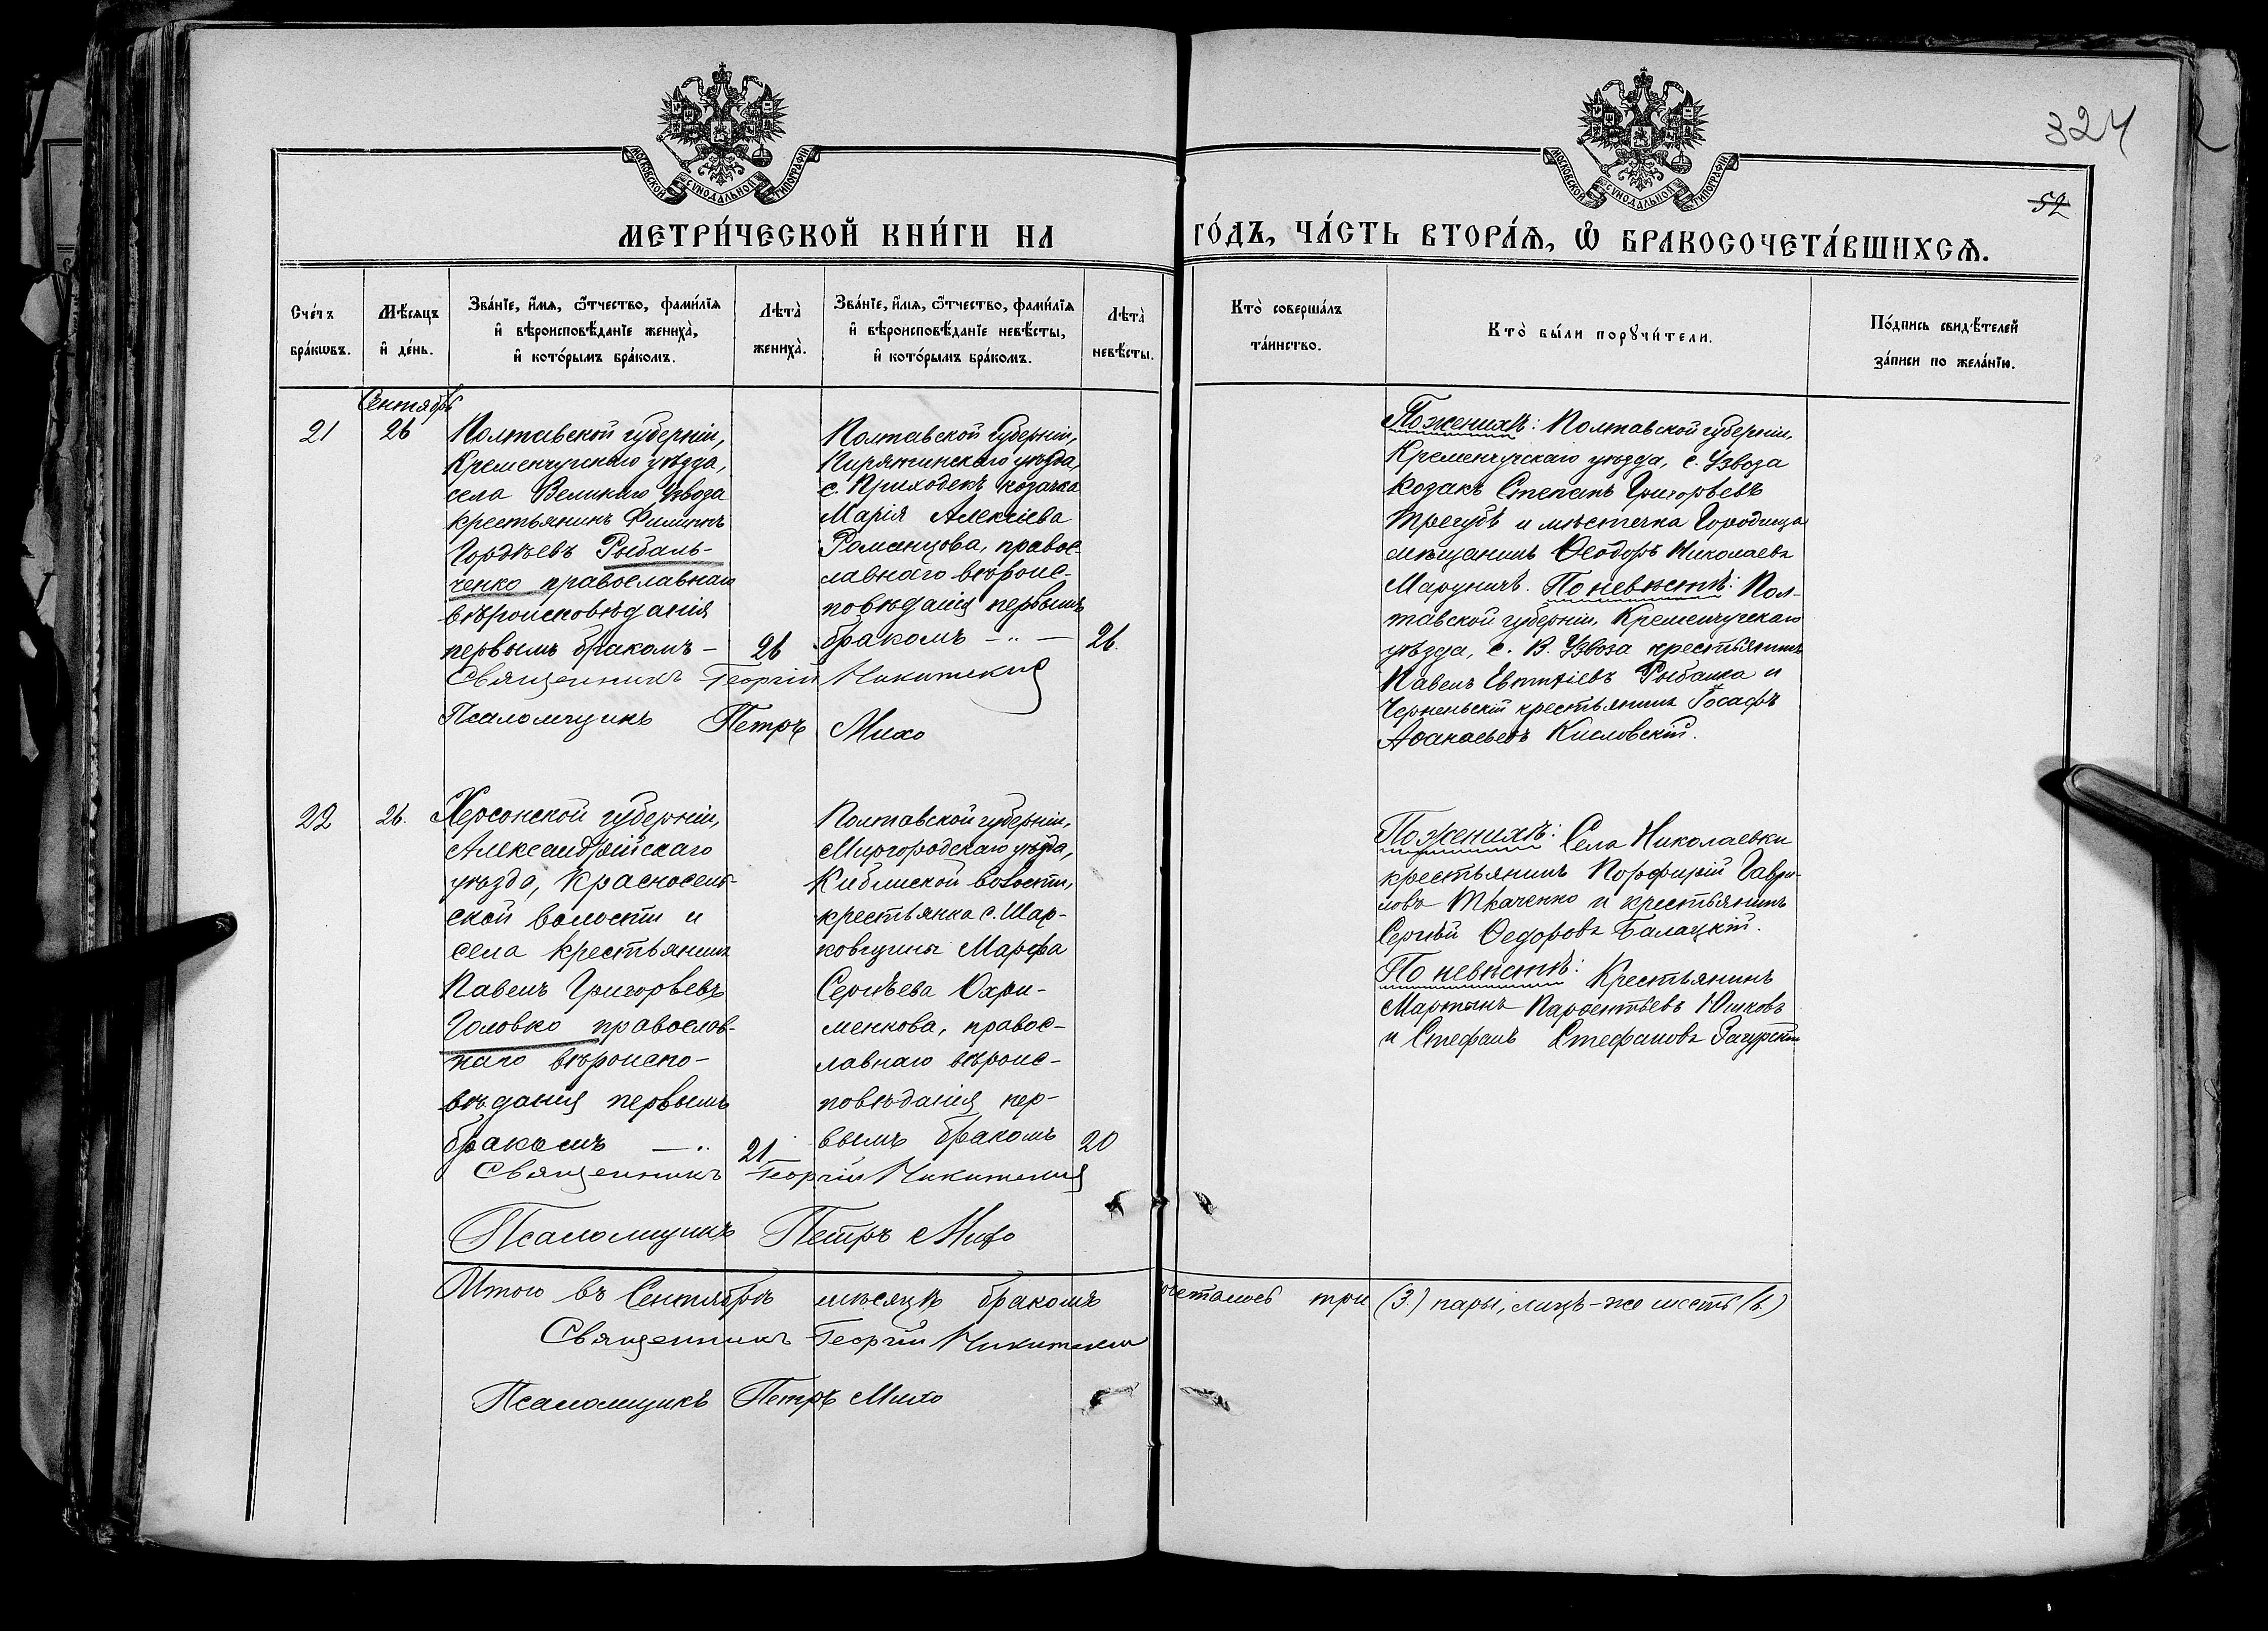 324
52
МОСКОВСКОЙ СѴНОДАЛЬНОЙ ТИПОГРАФІИ
МОСКОВСКОЙ СѴНОДАЛЬНОЙ ТИПОГРАФІИ
МЕТРИ́ЧЕСКОЙ КНИ́ГИ НА ГО́ДЪ, ЧА́СТЬ ВТОРА́Ѧ, Ѽ БРАКОСОЧЕТА́ВШИХСѦ.
Сче́тъ
бра́кѡвъ.
Мѣ́сяцъ
и҆ де́нь.
Зва́нїе, и҆́мя, ѻ҆́тчество, фами́лїя
и҆ вѣроисповѣ́данїе жениха̀,
и҆ кото́рымъ бра́комъ.
Лѣта̀
жениха̀.
Зва́нїе, и҆́мя, ѻ҆́тчество, фами́лїя
и҆ вѣроисповѣ́данїе невѣ́сты,
и҆ кото́рымъ бра́комъ.
Лѣта̀
невѣ́сты.
Кто̀ соверша́лъ
та́инство.
Кто̀ бы́ли порꙋчи́тели.
По́дпись свидѣ́телей
за́писи по жела́нїю.
Сентябрь
21
26
Полтавской губерніи,
Кременчугскаго уѣзда,
села Великаго Узвоза
крестьянинъ Филиппъ
Гордѣевъ Рыбаль-
ченко православнаго
вѣроисповѣданія
первымъ бракомъ —
26
Полтавской губерніи,
Пирятинскаго уѣзда,
с. Приходекъ козачка
Марія Алексіева
Романцова, правос-
лавнаго вѣроис-
повѣданія первымъ
бракомъ — „ —
26.
Священникъ Георгій Никитскій
Псаломщикъ Петръ Михо
По женихѣ: Полтавской губерніи,
Кременчугскаго уѣзда, с. Узвоза
козакъ Степанъ Григорьевъ
Трегубъ и мѣстечка Городища
мѣщанинъ Ѳеодоръ Николаевъ
Маруничъ. По невѣстѣ: Пол-
тавской губерніи, Кременчугскаго
уѣзда, с. В. Узвоза крестьянинъ
Павелъ Евтихіевъ Рыбалка и
крестьянинъ Іосафъ
Аѳанасьевъ Кисловскій.
22
26.
Херсонской губерніи,
Александрійскаго
уѣзда, Красносель-
ской волости и
села крестьянинъ
Павелъ Григорьевъ
Головко православ-
наго вѣроиспо-
вѣданія первымъ
бракомъ — „
21
Полтавской губерніи,
Миргородскаго уѣзда,
Кибинской волости,
крестьянка с. Шар-
ковщины Марфа
Сергѣева Охри-
менкова, правос-
лавнаго вѣроис-
повѣданія пер-
вымъ бракомъ
20
Священникъ Георгій Никитскій
Псаломщикъ Петръ Михо
По женихѣ: Села Николаевки
крестьянинъ Порфирій Гаври-
ловъ Ткаченко и крестьянинъ
Сергѣй Ѳедоровъ Балацкій.
По невѣстѣ: Крестьянинъ
Мартынъ Парѳентьевъ Юшковъ
и Стефанъ Стефановъ Загурскій
Итого въ Сентябрѣ мѣсяцѣ бракомъ сочеталось три (3.) пары, лицъ-же шесть (6.)
Священникъ Георгій Никитскій
Псаломщикъ Петръ Михо